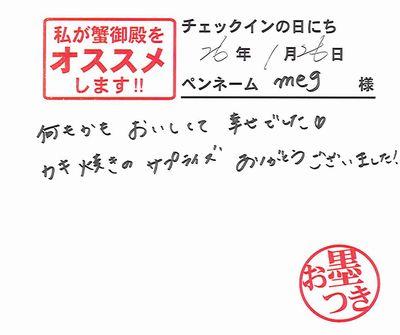 私が蟹御殿を
オススメ
します!!
チェックインの日にち
26年 1月26日
ペンネーム meg 様
何もかも おいしくて 幸せでした♡
カキ焼きの サプライズ ありがとうございました!
お墨
つき